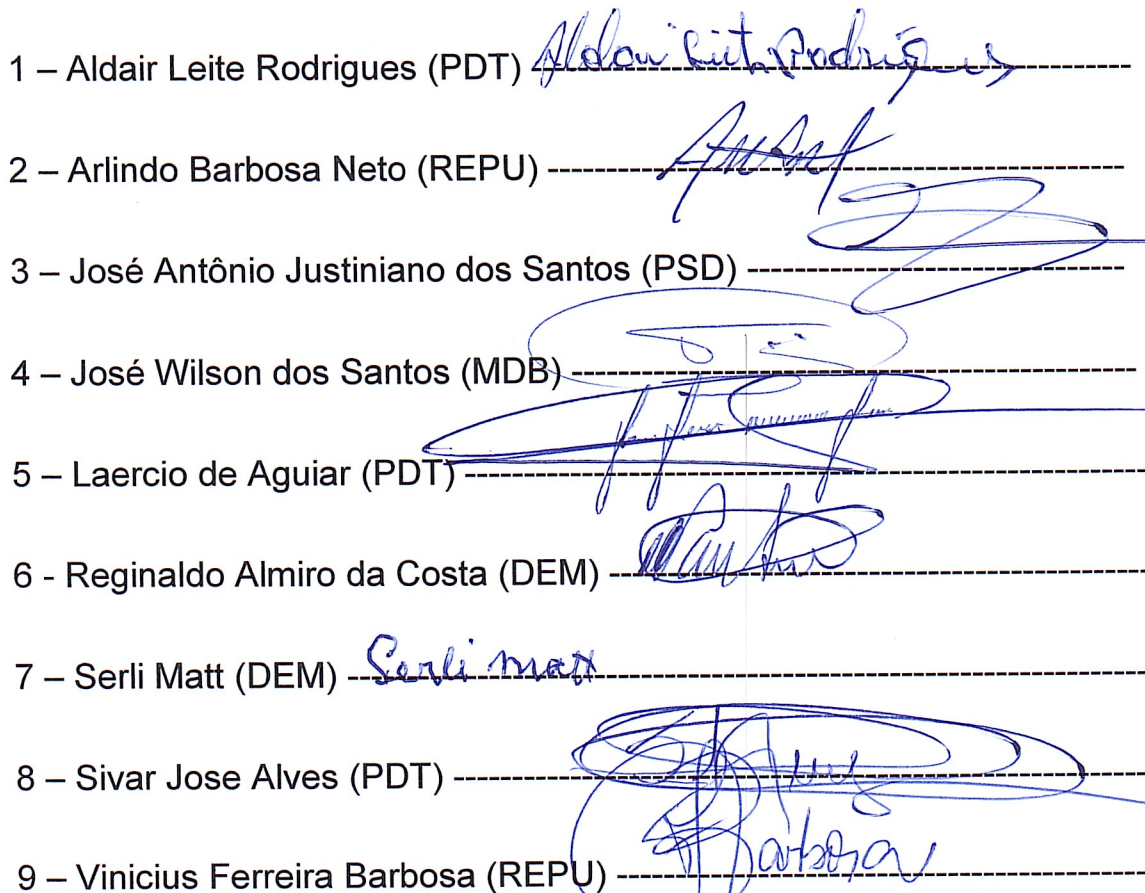 1 – Aldair Leite Rodrigues (PDT) Aldair Leite Rodrigues
2 – Arlindo Barbosa Neto (REPU)
3 – José Antônio Justiniano dos Santos (PSD)
4 – José Wilson dos Santos (MDB)
5 – Laercio de Aguiar (PDT)
6 - Reginaldo Almiro da Costa (DEM)
7 – Serli Matt (DEM) Serli Matt
8 – Sivar Jose Alves (PDT)
9 – Vinicius Ferreira Barbosa (REPU) Barbosa